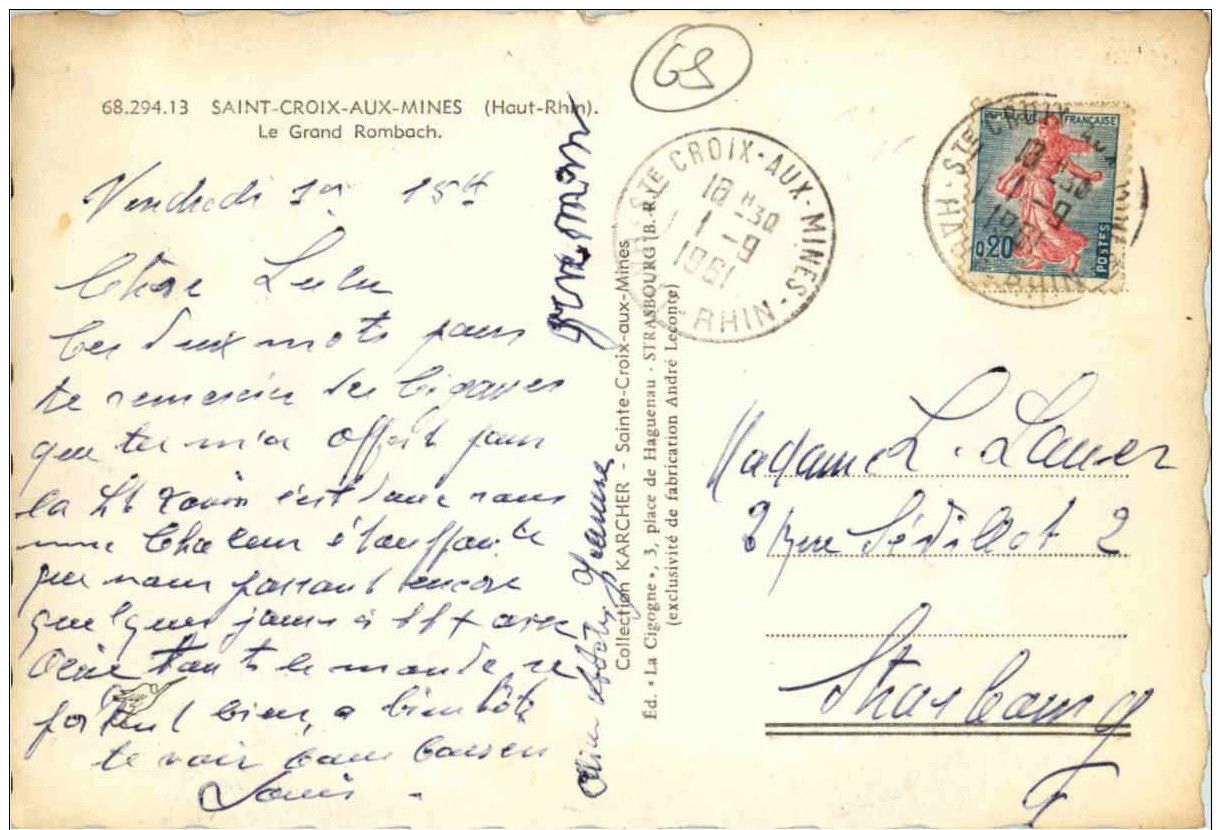 68.294.13 SAINT-CROIX-AUX-MINES (Haut-Rhin).
Le Grand Rombach.
Vendredi 1er 15H
Chère Lulu
Ces deux mots pour
te remercier des Cigares
que tu m'a offert pour
la St Louis c'est dans
une Chaleur étouffante
que nous passons encore
quelques jours à avec
tout le monde se
portent bien, a bientôt
te voir bons baisers
Louis
Collection KARCHER - Sainte-Croix-aux-Mines
Éd. «La Cigogne», 3, place de Haguenau - STRASBOURG (B.-R.)
(exclusivité de fabrication André Leconte)
68
STE CROIX-AUX-MINES
18H30
1-9
1961
RHIN
STE CROIX AUX MINES
18H30
1-9
1961
HAUT RHIN
RÉPUBLIQUE FRANÇAISE
0,20
POSTES
Madame L. Lauer
2 rue Sédillot 2
Strasbourg